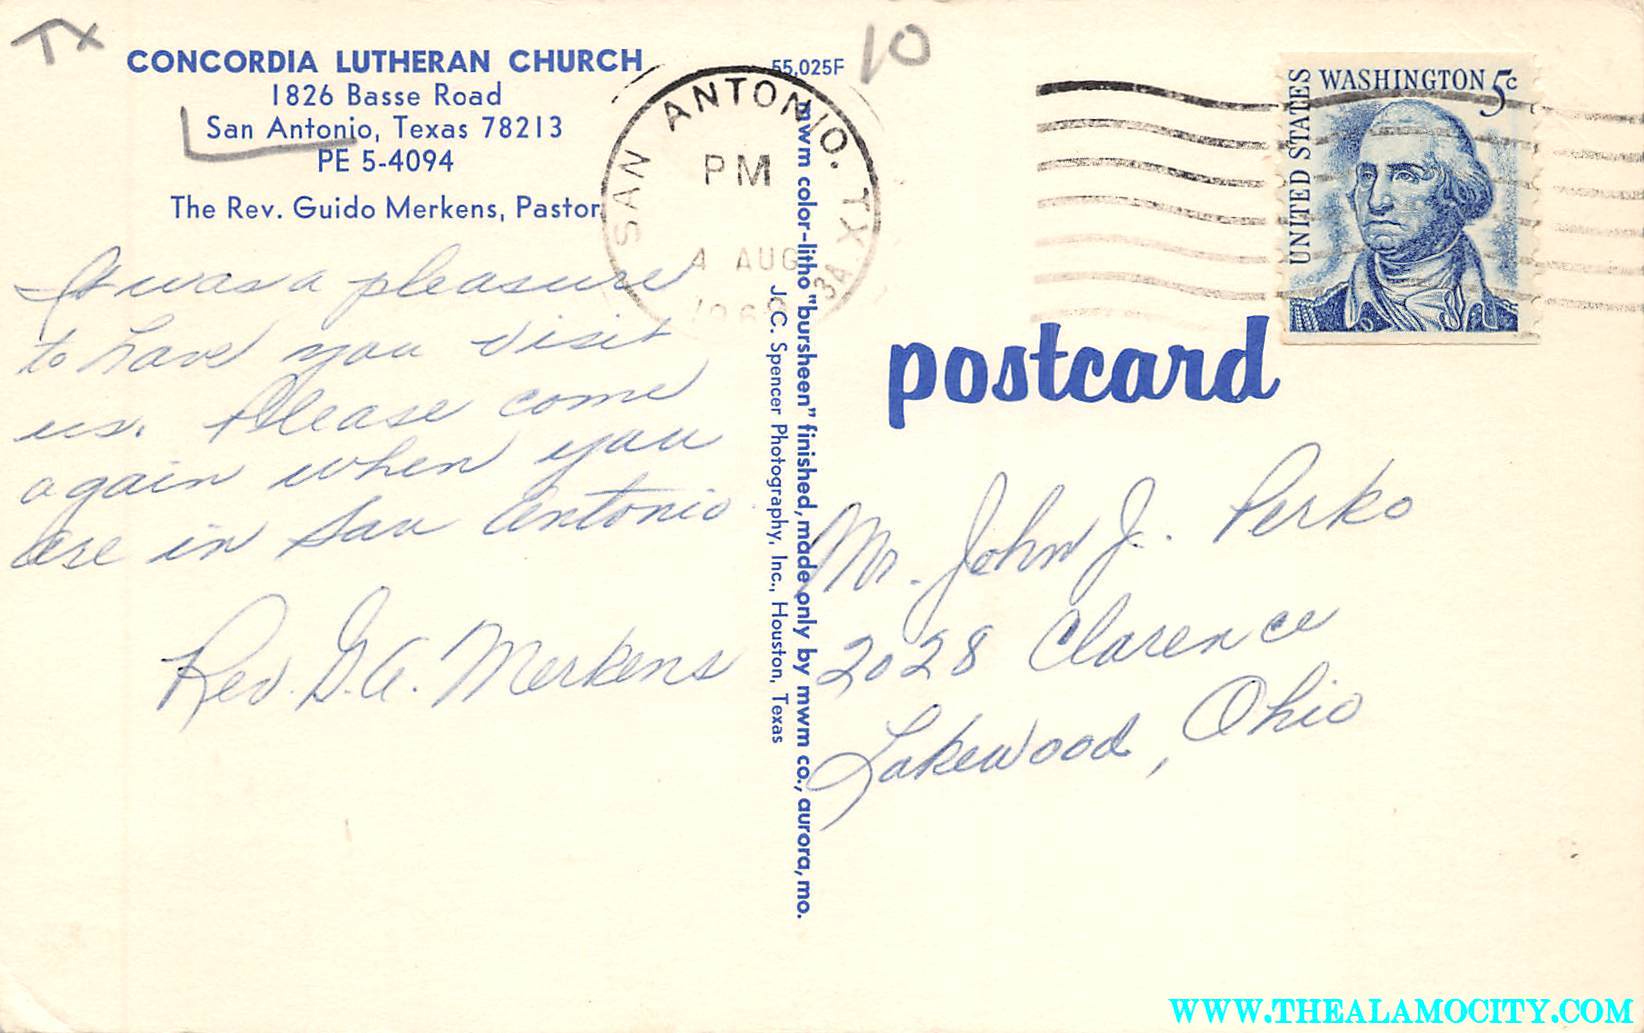 TX
CONCORDIA LUTHERAN CHURCH
1826 Basse Road
San Antonio, Texas 78213
PE 5-4094
The Rev. Guido Merkens, Pastor
It was a pleasure
to have you visit
us. Please come
again when you
are in San Antonio
Rev. G.A. Merkens
55,025F
10
SAN ANTONIO. TX
PM
4 AUG
mwm color-litho "bursheen" finished, made only by mwm co., aurora, mo.
J.C. Spencer Photography, Inc., Houston, Texas
UNITED STATES
WASHINGTON 5c
postcard
Mr. John J. Perko
2028 Clarence
Lakewood, Ohio
WWW.THEALAMOCITY.COM